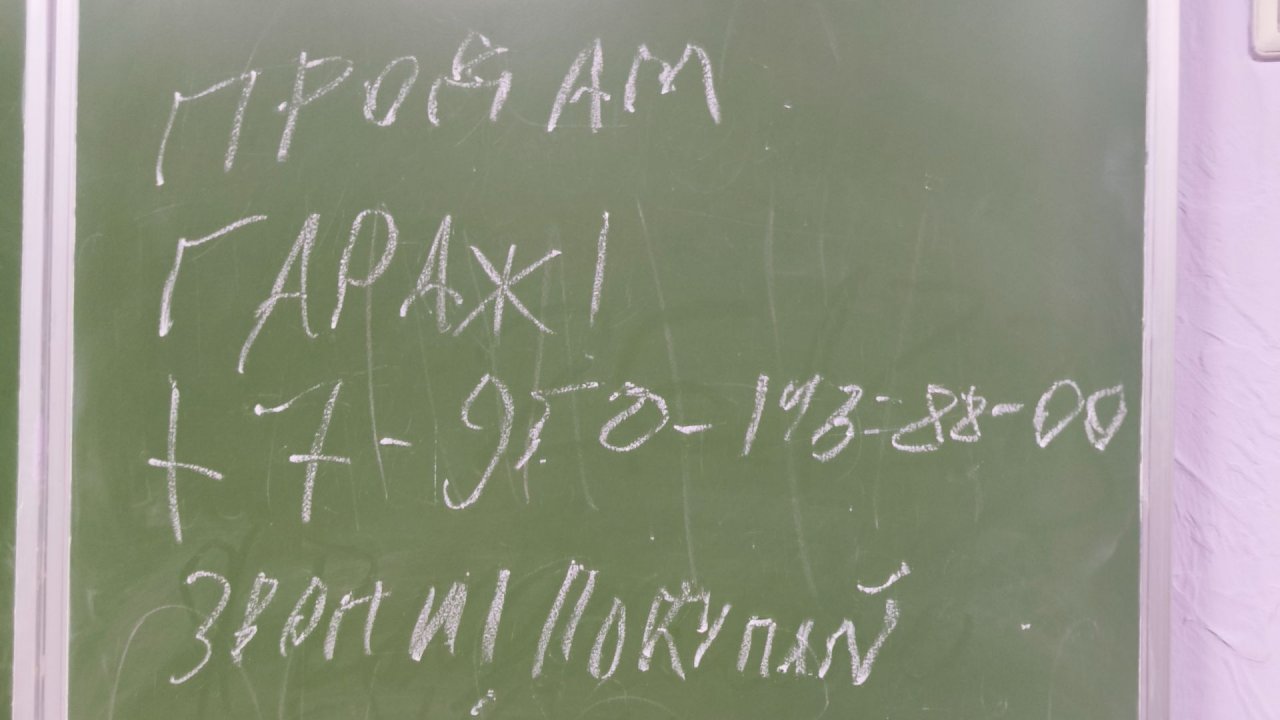 ПРОДАМ
ГАРАЖ!
+7-950-193-88-00
ЗВОНИ! ПОКУПАЙ